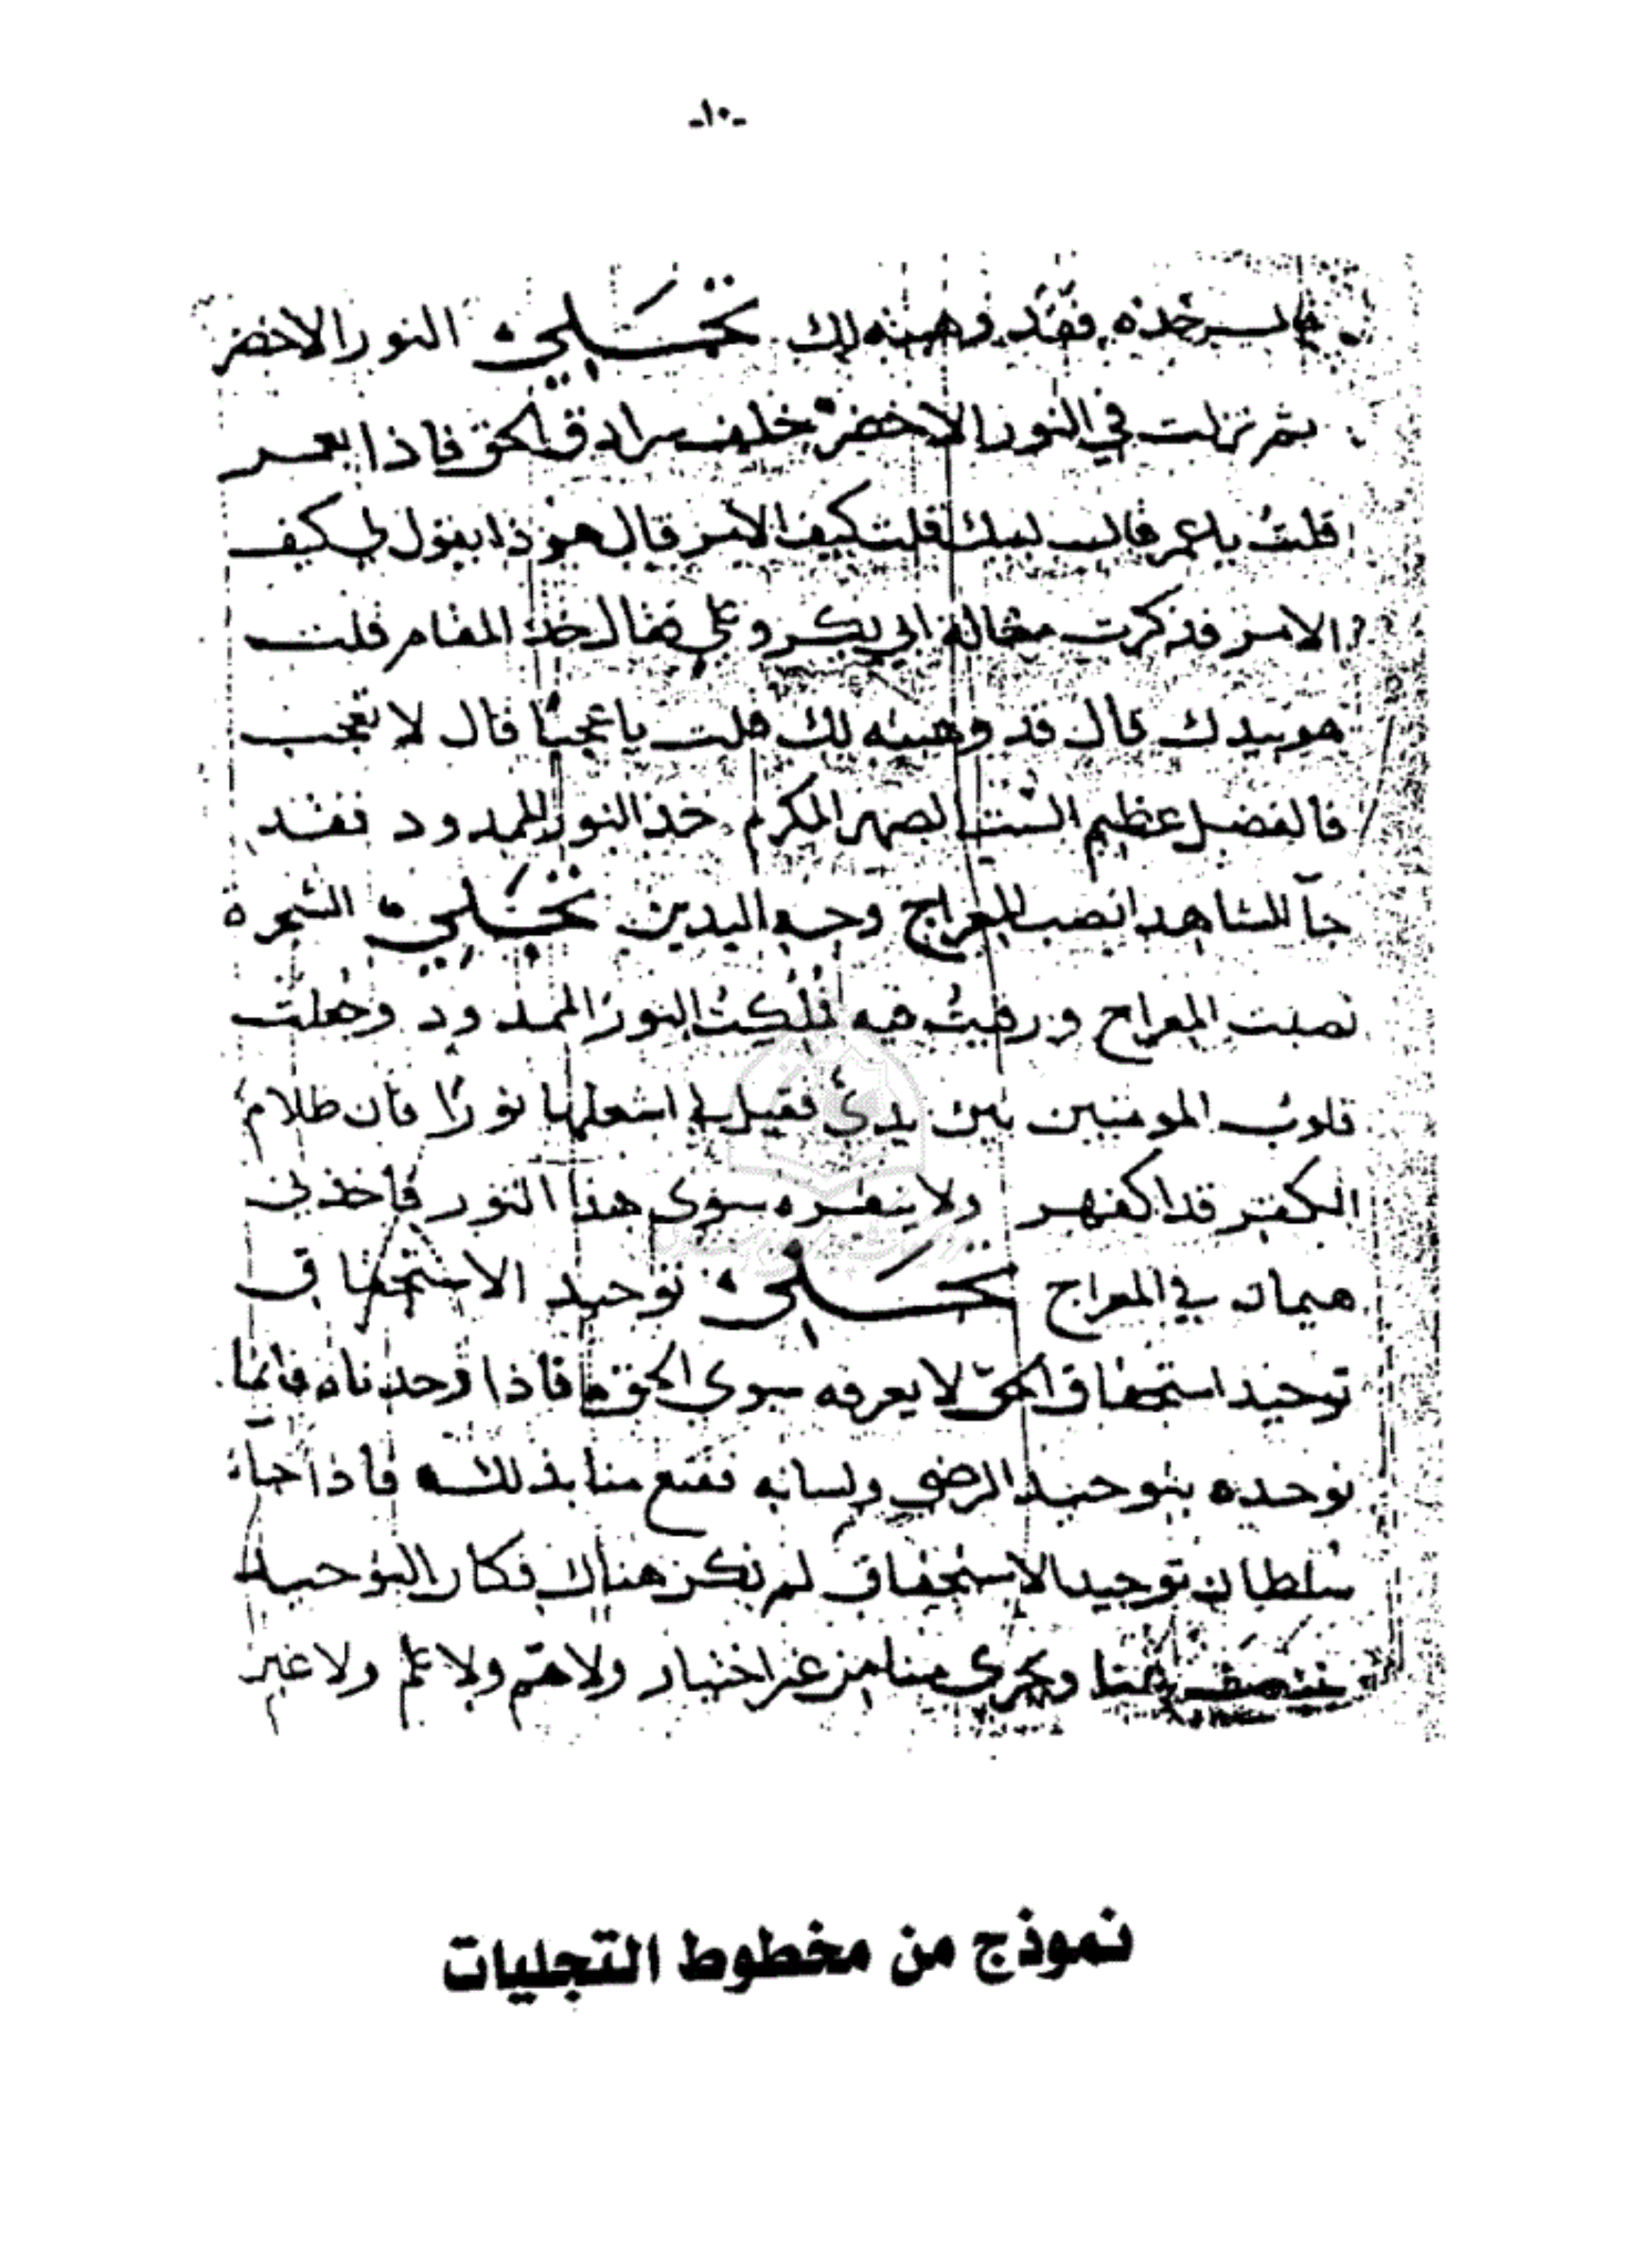 -١٠-
قال خذه فقد وهبته لك تجلي النور الاخضر
ثم نزلت في النور الاخضر خلف سرادق الحق فاذا بعمر
قلت يا عمر قال لبيك قلت كيف الامر قال هو ذا يقول لي كيف
الامر فذكرت مقالة ابي بكر وعلي فقال خذ المقام قلت
هو بيدك قال قد وهبته لك قلت يا عجبا قال لا تعجب
فالفضل عظيم الست الصهر المكرم خذ النور الممدود فقد
جآ للشاهد انصب المعراج وجه اليدين تجلي الشجرة
نصبت المعراج ورقيت فيه فملكت النور الممدود وجعلت
قلوب المومنين بين يدي فقيل لي اشعلها نورا فان ظلام
الكفر قد اكفهر ولا ينفره سوى هذا النور فاخذني
هيمان في المعراج تجلي توحيد الاستحقاق
توحيد استحقاق الحق لا يعرفه سوى الحق فاذا وحدناه فانما
نوحده بتوحيد الرضى ولسانه فقنع منا بذلك فاذا جاء
سلطان توحيد الاستحقاق لم نكن هناك فكان التوحيد
عنا ويجري منا من غير اختيار ولا هم ولا علم ولا عين
نموذج من مخطوط التجليات